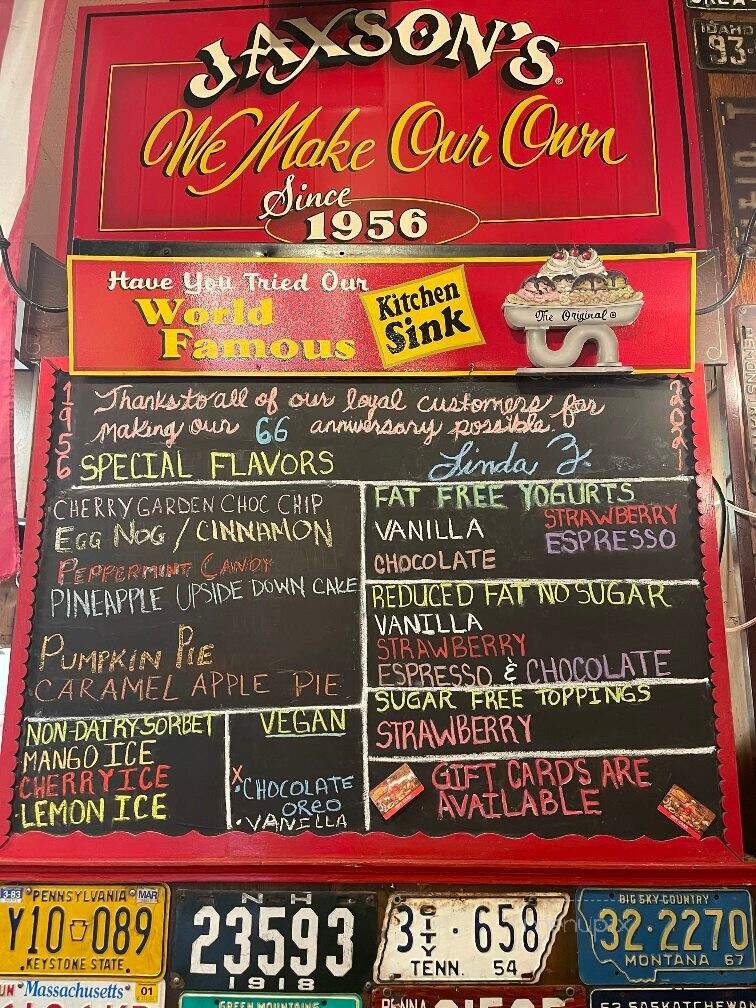 JAXSON'S
We Make Our Own
Since
1956
IDAHO
93
Have You Tried Our
World
Famous
Kitchen
Sink
The Original
1956
2021
Thanks to all of our loyal customers for
making our 66 anniversary possible.
Linda Z.
SPECIAL FLAVORS
CHERRY GARDEN CHOC CHIP
EGG NOG / CINNAMON
PEPPERMINT CANDY
PINEAPPLE UPSIDE DOWN CAKE
PUMPKIN PIE
CARAMEL APPLE PIE
FAT FREE YOGURTS
VANILLA STRAWBERRY
CHOCOLATE ESPRESSO
REDUCED FAT NO SUGAR
VANILLA
STRAWBERRY
ESPRESSO & CHOCOLATE
SUGAR FREE TOPPINGS
STRAWBERRY
NON-DAIRY SORBET
MANGO ICE
CHERRY ICE
LEMON ICE
VEGAN
X
• CHOCOLATE
OREO
• VANILLA
GIFT CARDS ARE
AVAILABLE
3-83 PENNSYLVANIA MAR
Y10 089
KEYSTONE STATE
N H
23593
1918
CITY
3 · 658
TENN. 54
BIG SKY COUNTRY
32·2270
MONTANA 67
Massachusetts 01
GREEN MOUNTAINS
PENNA
52 SASKATCHEWAN